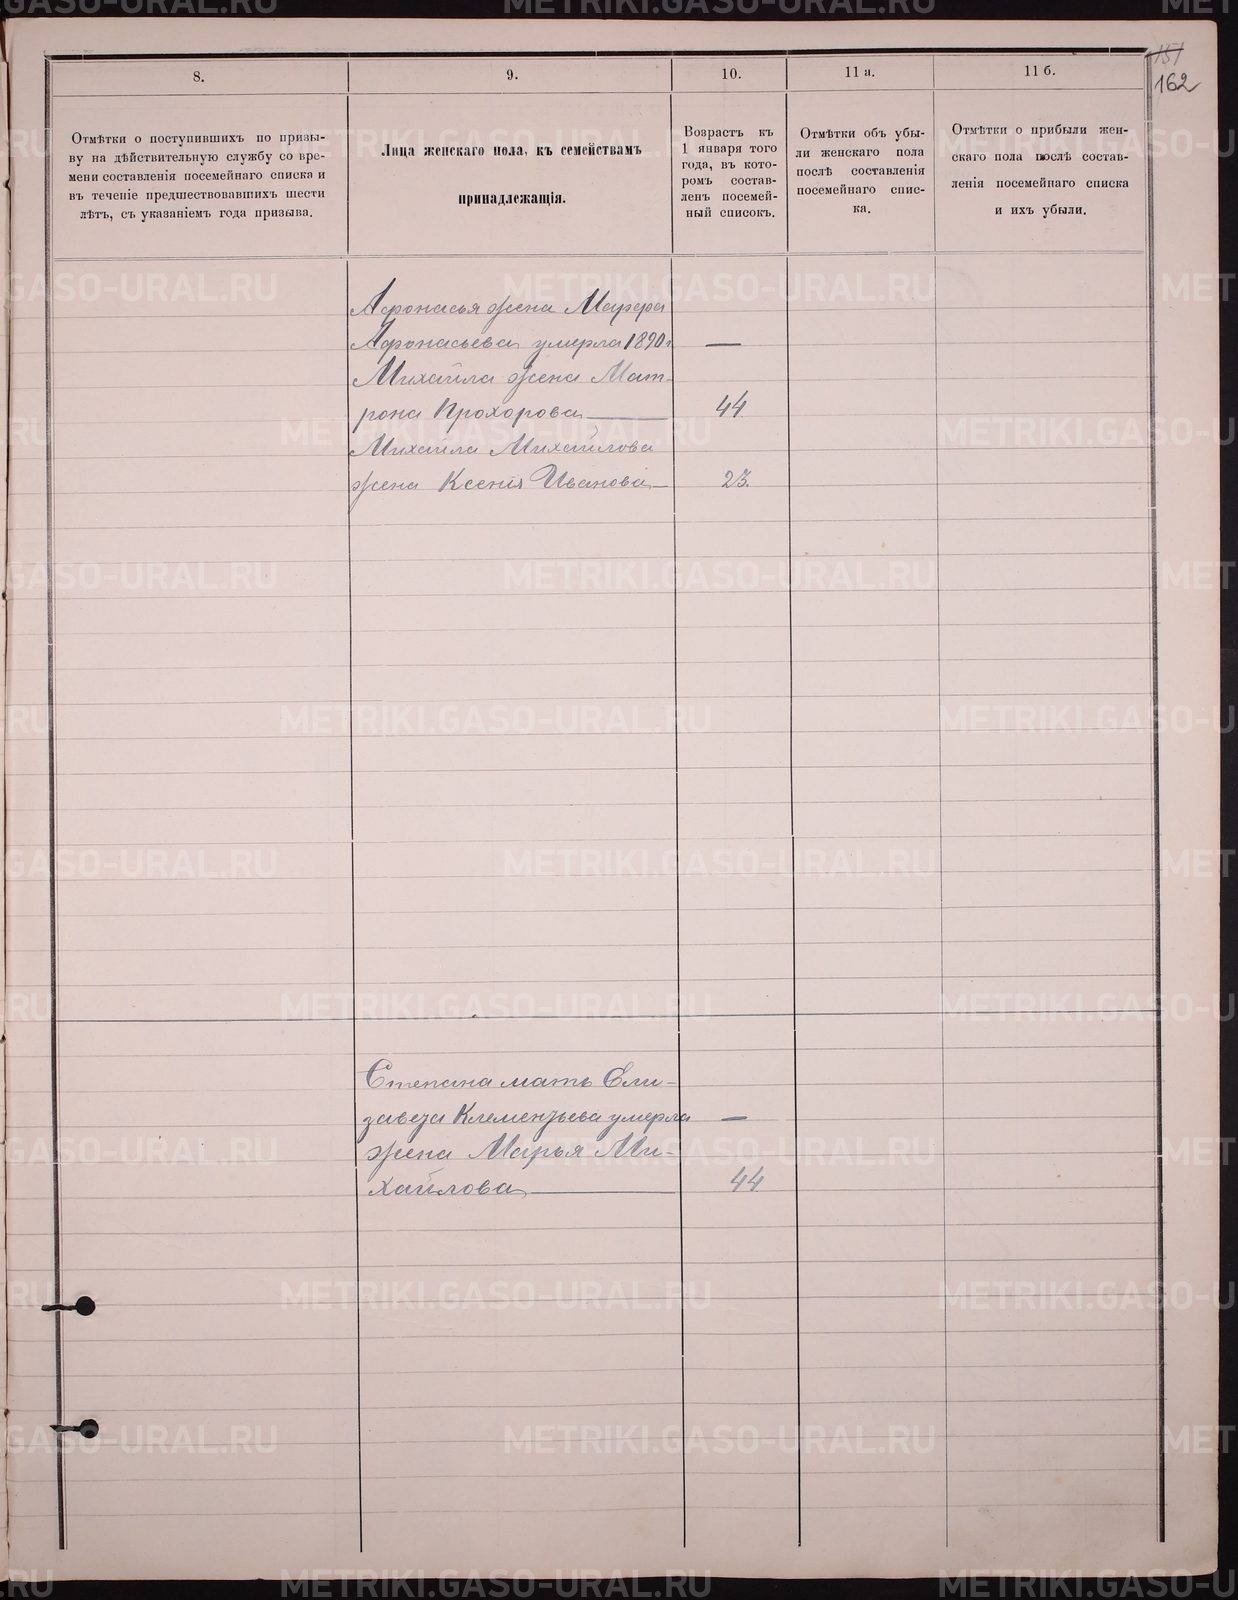 151
162
8.
9.
10.
11 а.
11 б.
Отмѣтки о поступившихъ по призы-
ву на дѣйствительную службу со вре-
мени составленія посемейнаго списка и
въ теченіе предшествовавшихъ шести
лѣтъ, съ указаніемъ года призыва.
Лица женскаго пола, къ семействамъ
принадлежащія.
Возрастъ къ
1 января того
года, въ кото-
ромъ состав-
ленъ посемей-
ный списокъ.
Отмѣтки объ убы-
ли женскаго пола
послѣ составленія
посемейнаго спис-
ка.
Отмѣтки о прибыли жен-
скаго пола послѣ состав-
ленія посемейнаго списка
и ихъ убыли.
Афонасья жена Марфа
Афонасьева умерла 1890 г —
Михайла жена Мат-
рона Прохорова — 44
Михайла Михайлова
жена Ксенія Иванова — 23.
Степана мать Ели-
завета Клементьева умерла —
жена Марья Ми-
хайлова — 44
METRIKI.GASO-URAL.RU